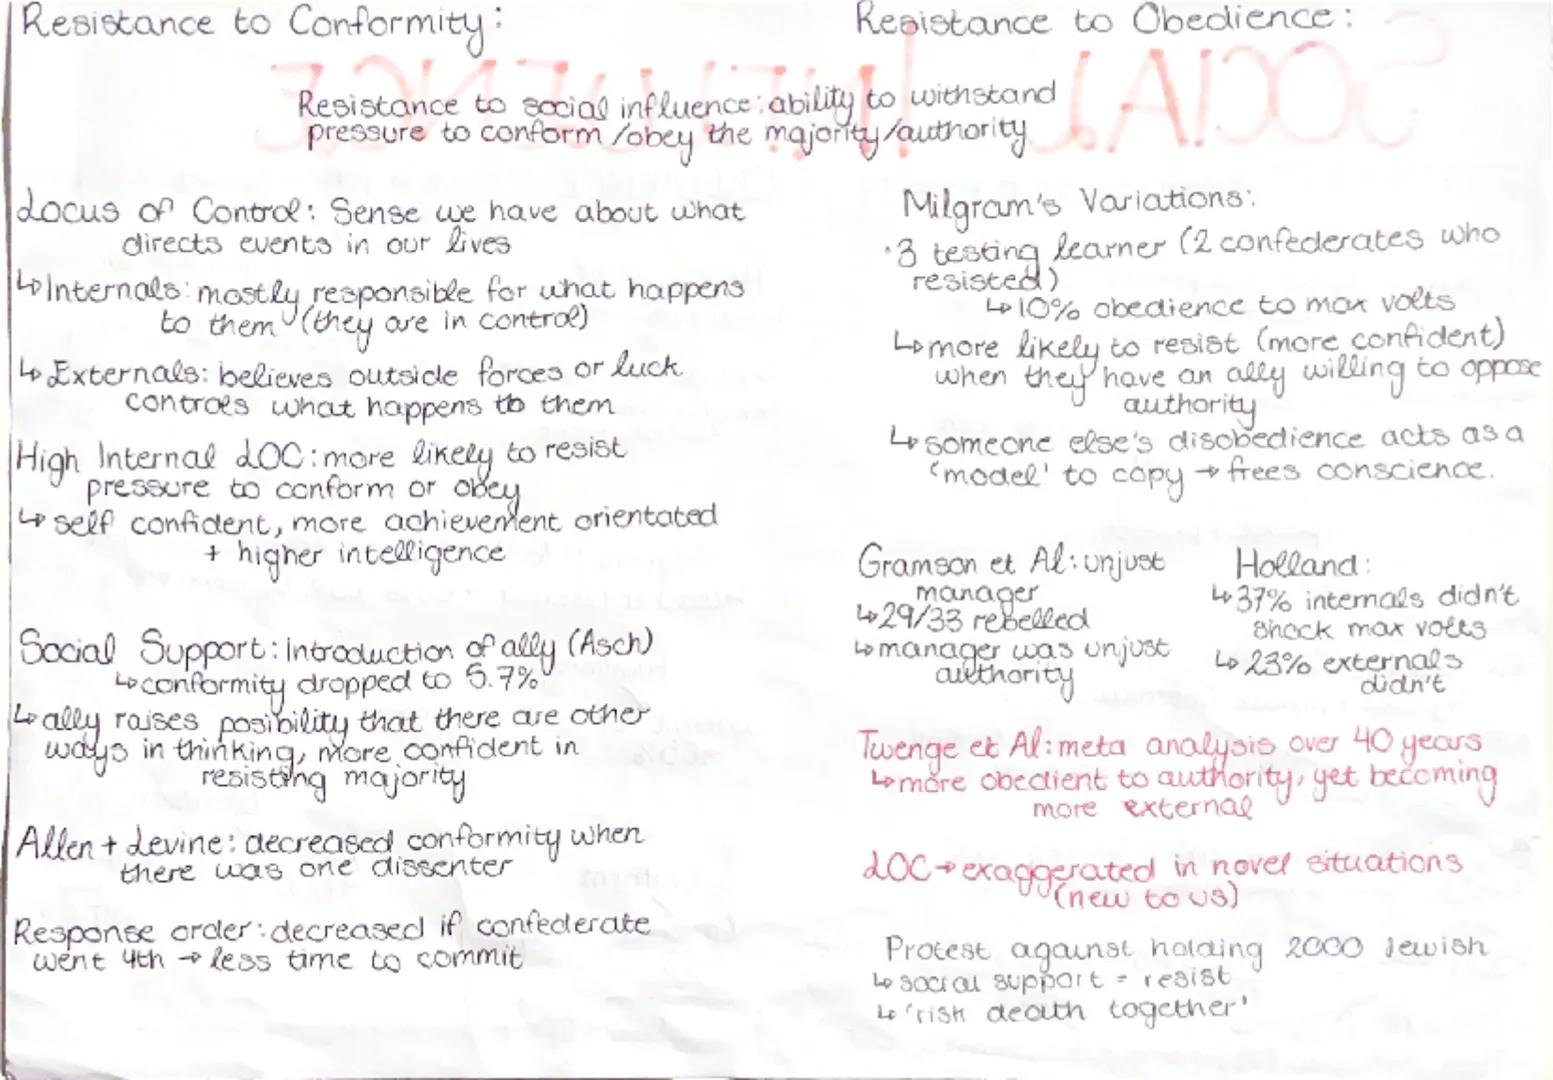 Resistance to Conformity:
Resistance to Obedience:
SOCIAL INFLUENCE
Resistance to social influence: ability to withstand
pressure to conform/obey the majority/authority
Locus of Control: Sense we have about what
directs events in our lives
↳Internals: mostly responsible for what happens
to them (they are in control)
↳Externals: believes outside forces or luck
controls what happens to them
High Internal LOC: more likely to resist
pressure to conform or obey
↳self confident, more achievement orientated
+ higher intelligence
Social Support: introduction of ally (Asch)
↳conformity dropped to 5.7%
↳ally raises posibility that there are other
ways in thinking, more confident in
resisting majority
Allen + Levine: decreased conformity when
there was one dissenter
Response order: decreased if confederate
went 4th → less time to commit
Milgram's Variations:
·3 testing learner (2 confederates who
resisted)
↳10% obedience to max volts
↳more likely to resist (more confident)
when they have an ally willing to oppose
authority
↳someone else's disobedience acts as a
'model' to copy → frees conscience.
Gramson et Al: unjust
manager
↳29/33 rebelled
↳manager was unjust
authority
Holland:
↳37% internals didn't
shock max volts
↳23% externals
didn't
Twenge et Al: meta analysis over 40 years
↳more obedient to authority, yet becoming
more external
LOC → exaggerated in novel situations
(new to us)
Protest against holding 2000 Jewish
↳social support = resist
↳'risk death together'